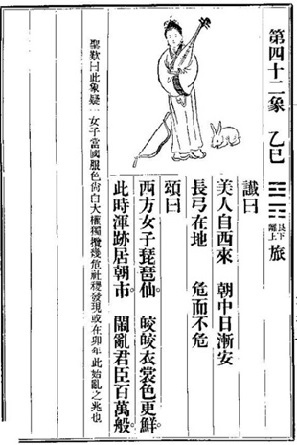 第四十二象 乙巳 艮下離上 旅
讖曰
美人自西來 朝中日漸安
長弓在地 危而不危
頌曰
西方女子琵琶仙 皎皎衣裳色更鮮。
此時渾跡居朝市 鬧亂君臣百萬般。
聖歎曰此象疑一女子當國服色尚白大權獨攬幾危社稷發現或在卯年此始亂之兆也